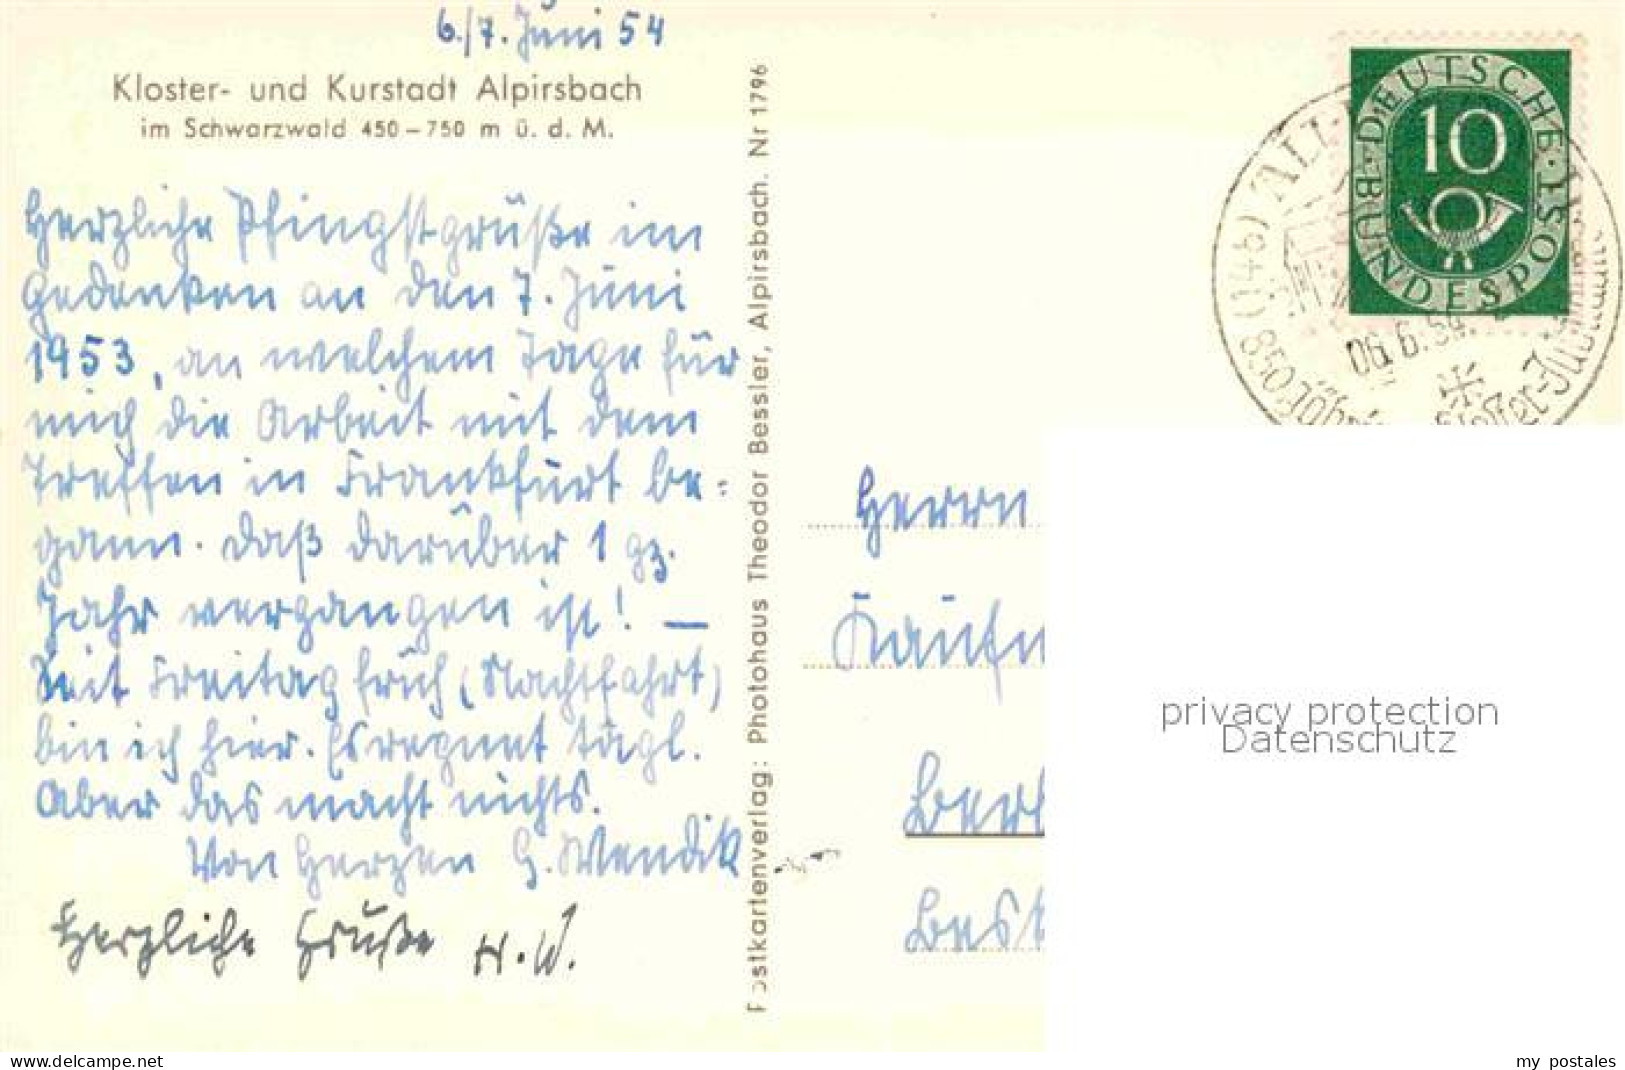 6./7. Juni 54
Kloster- und Kurstadt Alpirsbach
im Schwarzwald 450 – 750 m ü. d. M.
Herzliche Pfingstgrüße im
Gedenken an den 7. Juni
1953, an welchem Tage für
mich die Arbeit mit dem
Treffen in Frankfurt be=
gann. Daß darüber 1 gz.
Jahr vergangen ist! —
Seit Freitag früh (Nachtfahrt)
bin ich hier. Es regnet tägl.
Aber das macht nichts.
Von Herzen G. Wendik
Herzliche Grüße H. W.
Postkartenverlag: Photohaus Theodor Bessler, Alpirsbach. Nr 1796
DEUTSCHE BUNDESPOST
10
(14b)
06.6.54
850 Jähr
Herrn
Kaufm
privacy protection
Datenschutz
www.delcampe.net
my_postales